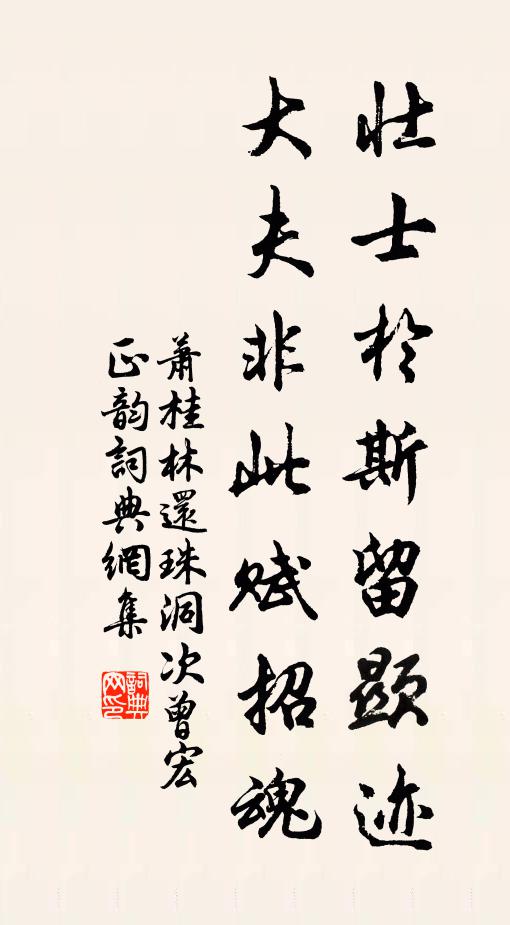 壮士於斯留顯迹
大夫非此賦招魂
蕭桂林還珠洞次曾宏
正韵詞典網集
詞典网印